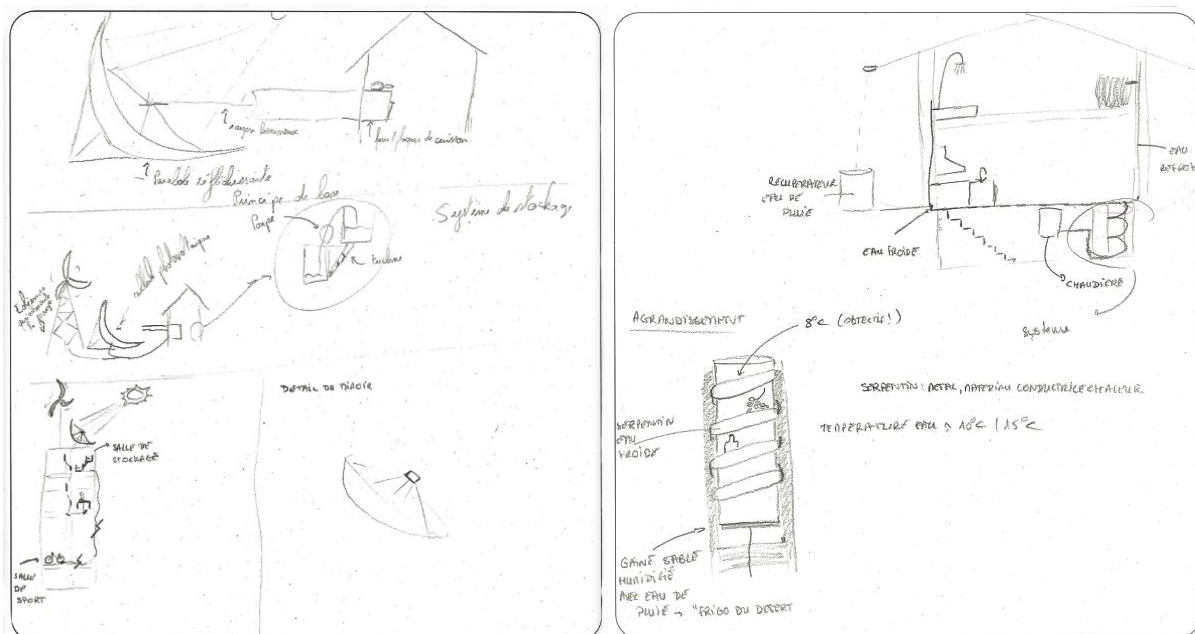 rayon lumineux
four/plaques de cuisson
Parabole réfléchissante
Principe de base
Système de stockage
Pompe
turbine
cellule photovoltaique
SALLE DE
STOCKAGE
DETAIL DU MIROIR
SALLE
DE
SPORT
RECUPERATEUR
EAU DE
PLUIE
EAU
EAU FROIDE
CHAUDIÈRE
Système
AGRANDISSEMENT
8°C (OBJECTIF!)
SERPENTIN: METAL, MATERIAU CONDUCTRICE CHALEUR
TEMPERATURE EAU → 10°C / 15°C
SERPENTIN
EAU
FROIDE
GAINE SABLE
HUMIDIFIÉ
AVEC EAU DE
PLUIE → "FRIGO DU DESERT